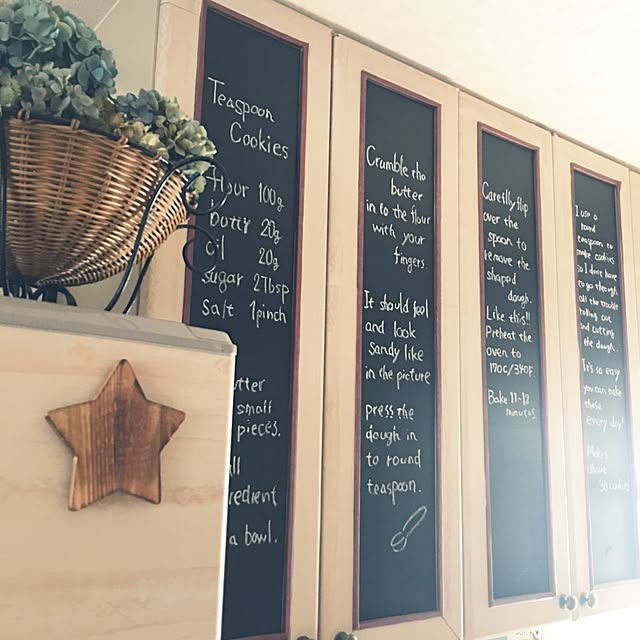 Teaspoon
Cookies
flour 100g
butter 20g
oil 20g
sugar 2Tbsp
salt 1pinch
small
pieces.
a bowl.
Crumble the
butter
in to the flour
with your
fingers.
It should feel
and look
Sandy like
in the picture
press the
dough in
to round
teaspoon.
Carefully flip
over the
spoon to
remove the
shaped
dough.
Like this!!
Preheat the
oven to
170c/340F
Bake 11-12
minutes
I use a
round
teaspoon to
make cookies
so I don't have
to go through
all the trouble
rolling out
and cutting
the dough.
It's so easy
you can make
these
every day!
Makes
about
30 cookies